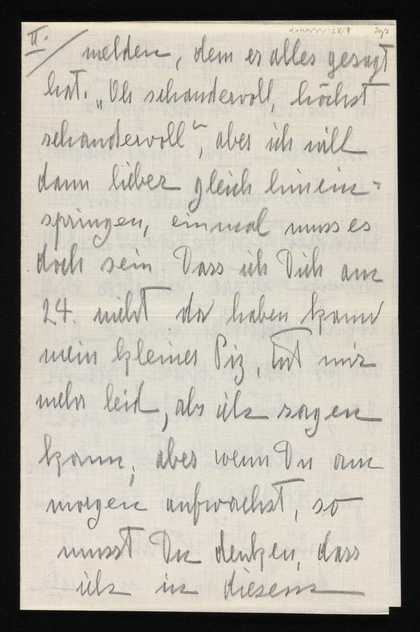 II.
melden, dem er alles gesagt
hat. „Oh schandervoll, höchst
schandervoll“, aber ich will
dann lieber gleich hinein-
springen, einmal muss es
doch sein. Dass ich Dich am
24. nicht da haben kann
mein kleiner Piz, tut mir
mehr leid, als ich sagen
kann, aber wenn Du am
morgen aufwachst, so
musst Du denken, dass
ich in diesem